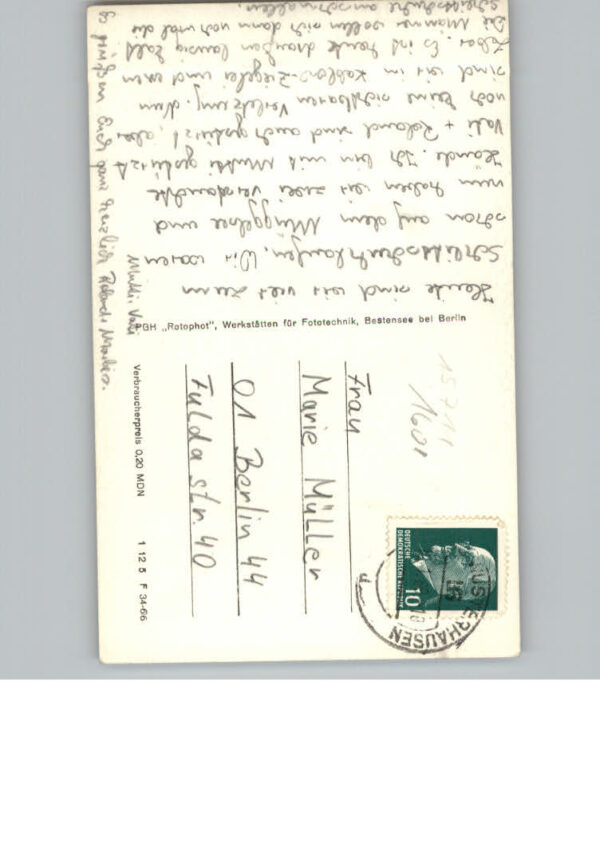 Heute sind wir vier zum
Schlittschuhlaufen. Wir waren
schon auf dem Müggelsee und
nun haben wir zwei verstauchte
Hände. Ich bin mit Mutti gestürzt
Vati + Roland sind auch gestürzt, aber
noch keine sichtbaren Verletzung. Nun
sind wir in Kablow-Ziegelei und
Es ist heute draußen lausig kalt
Die Männer wollen sich dann noch mal die
Schlittschuhe anschnallen.
So grüßen Euch ganz herzlich Roland, Marlies.
Mutti, Vati
PGH „Rotophot", Werkstätten für Fototechnik, Bestensee bei Berlin
Verbraucherpreis 0,20 MDN
1 12 5 F 34-66
1601
Frau
Marie Müller
01 Berlin 44
Fuldastr. 40
DEUTSCHE
DEMOKRATISCHE REPUBLIK
10
USTERHAUSEN